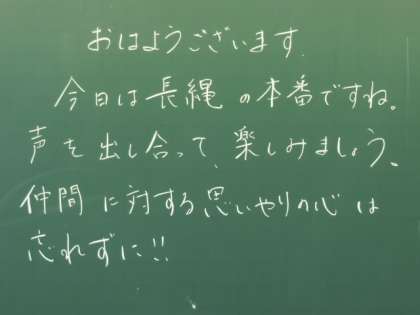 おはようございます.
今日は長縄の本番ですね。
声を出し合って、楽しみましょう。
仲間に対する思いやりの心は
忘れずに!!